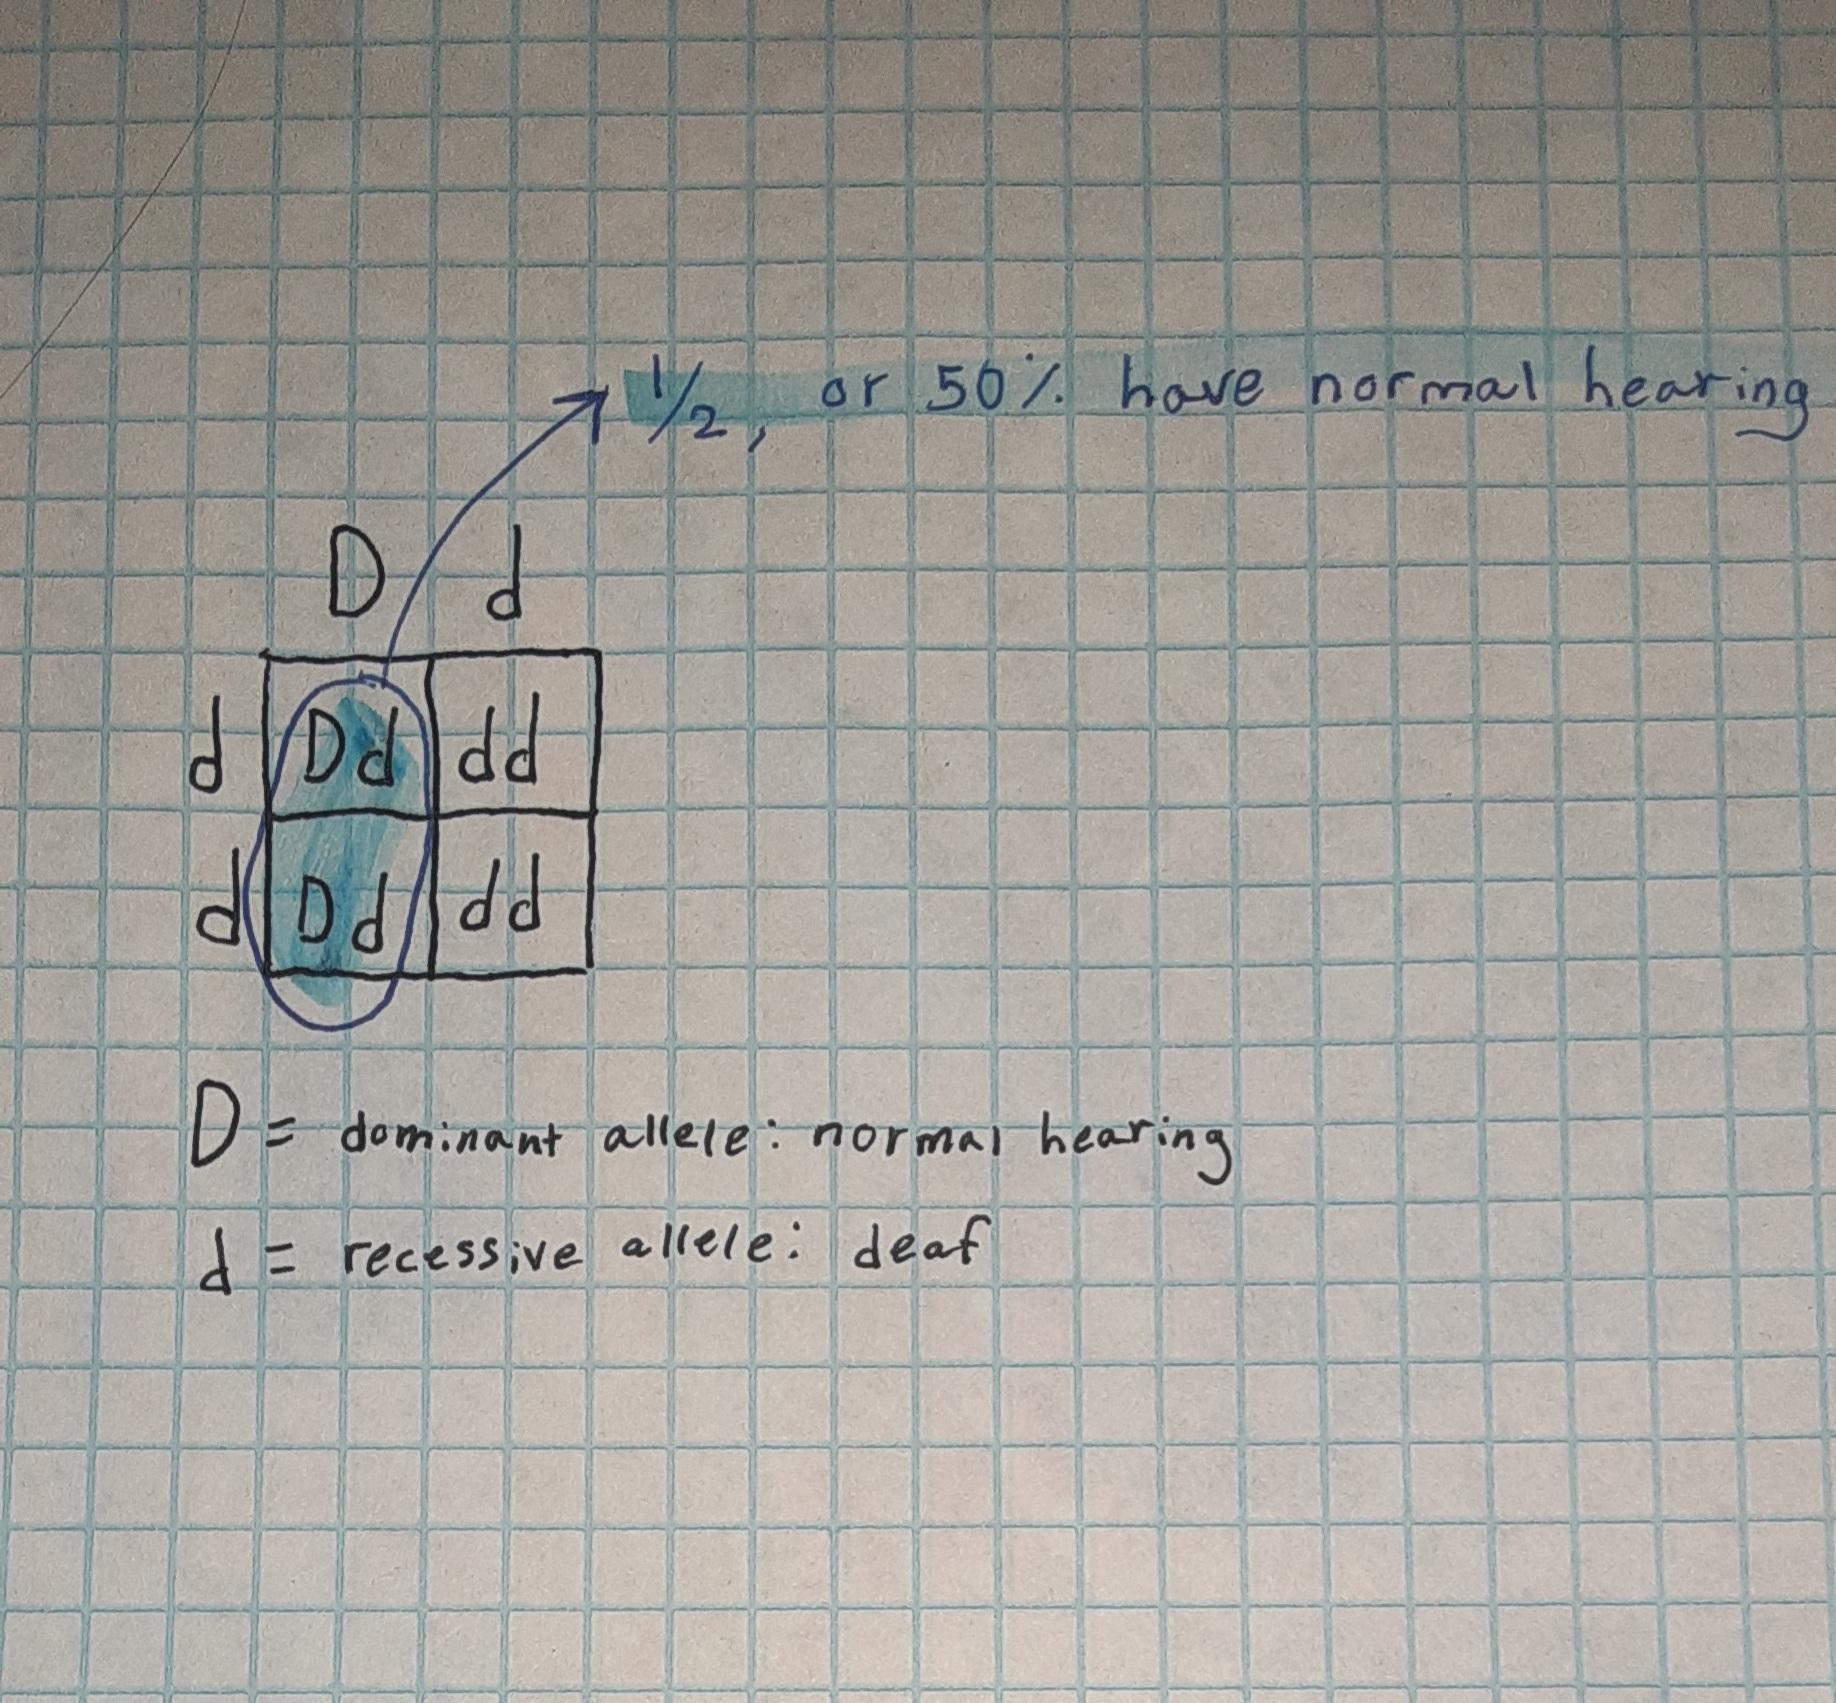 1/2, or 50% have normal hearing
D d
d Dd dd
d Dd dd
D = dominant allele: normal hearing
d = recessive allele: deaf